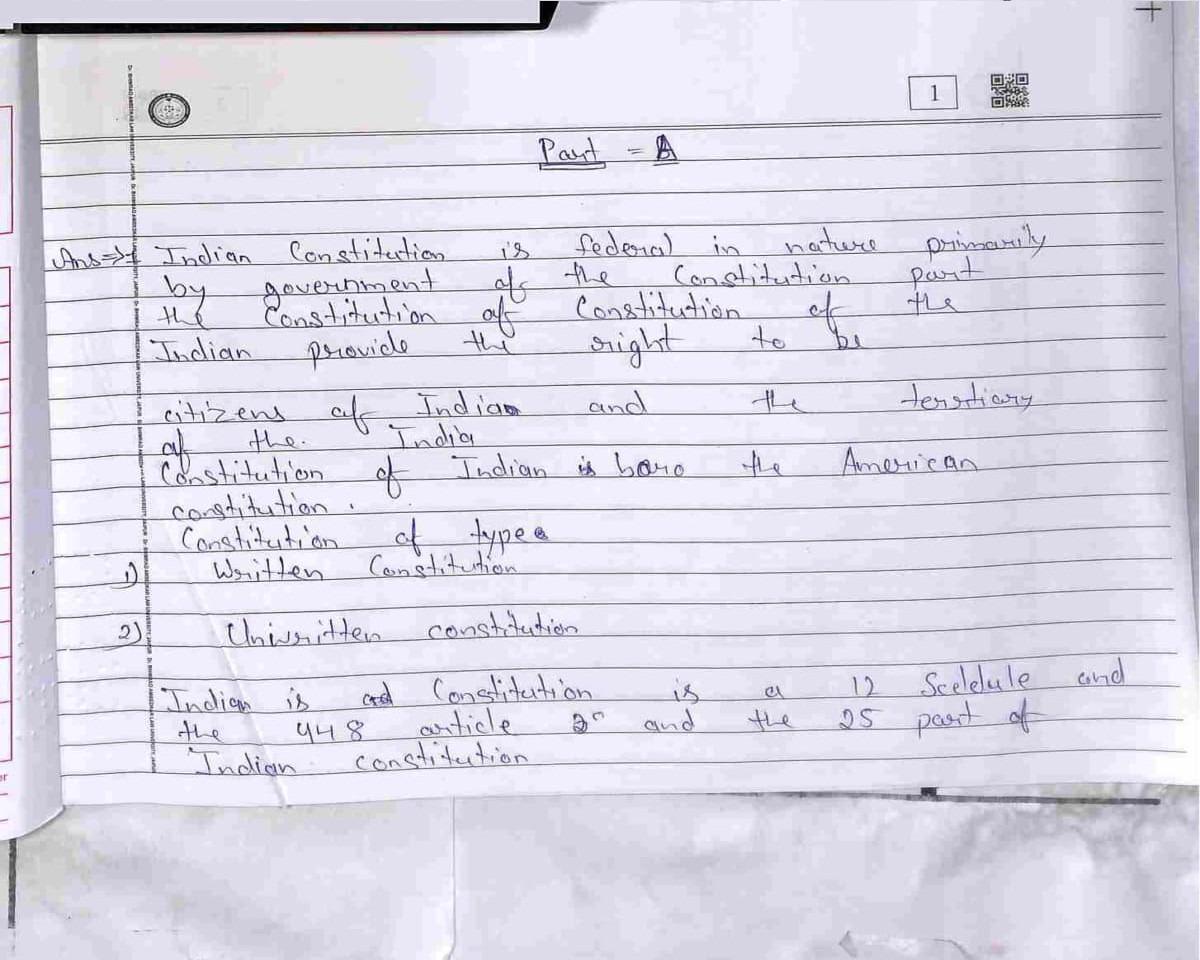 1
Part = A
Ans⇒1 Indian Constitution is federal in nature primarily
by government of the Constitution part
the Constitution of Constitution of the
Indian provide the right to be
citizens of India and the terstiary
of the. India
Constitution of Indian is baro the American
constitution.
Constitution of type
1) Written Constitution
2) Unwritten constitution
Indian is Constitution is a 12 Sceldule and
the 448 article and the 25 part of
Indian constitution